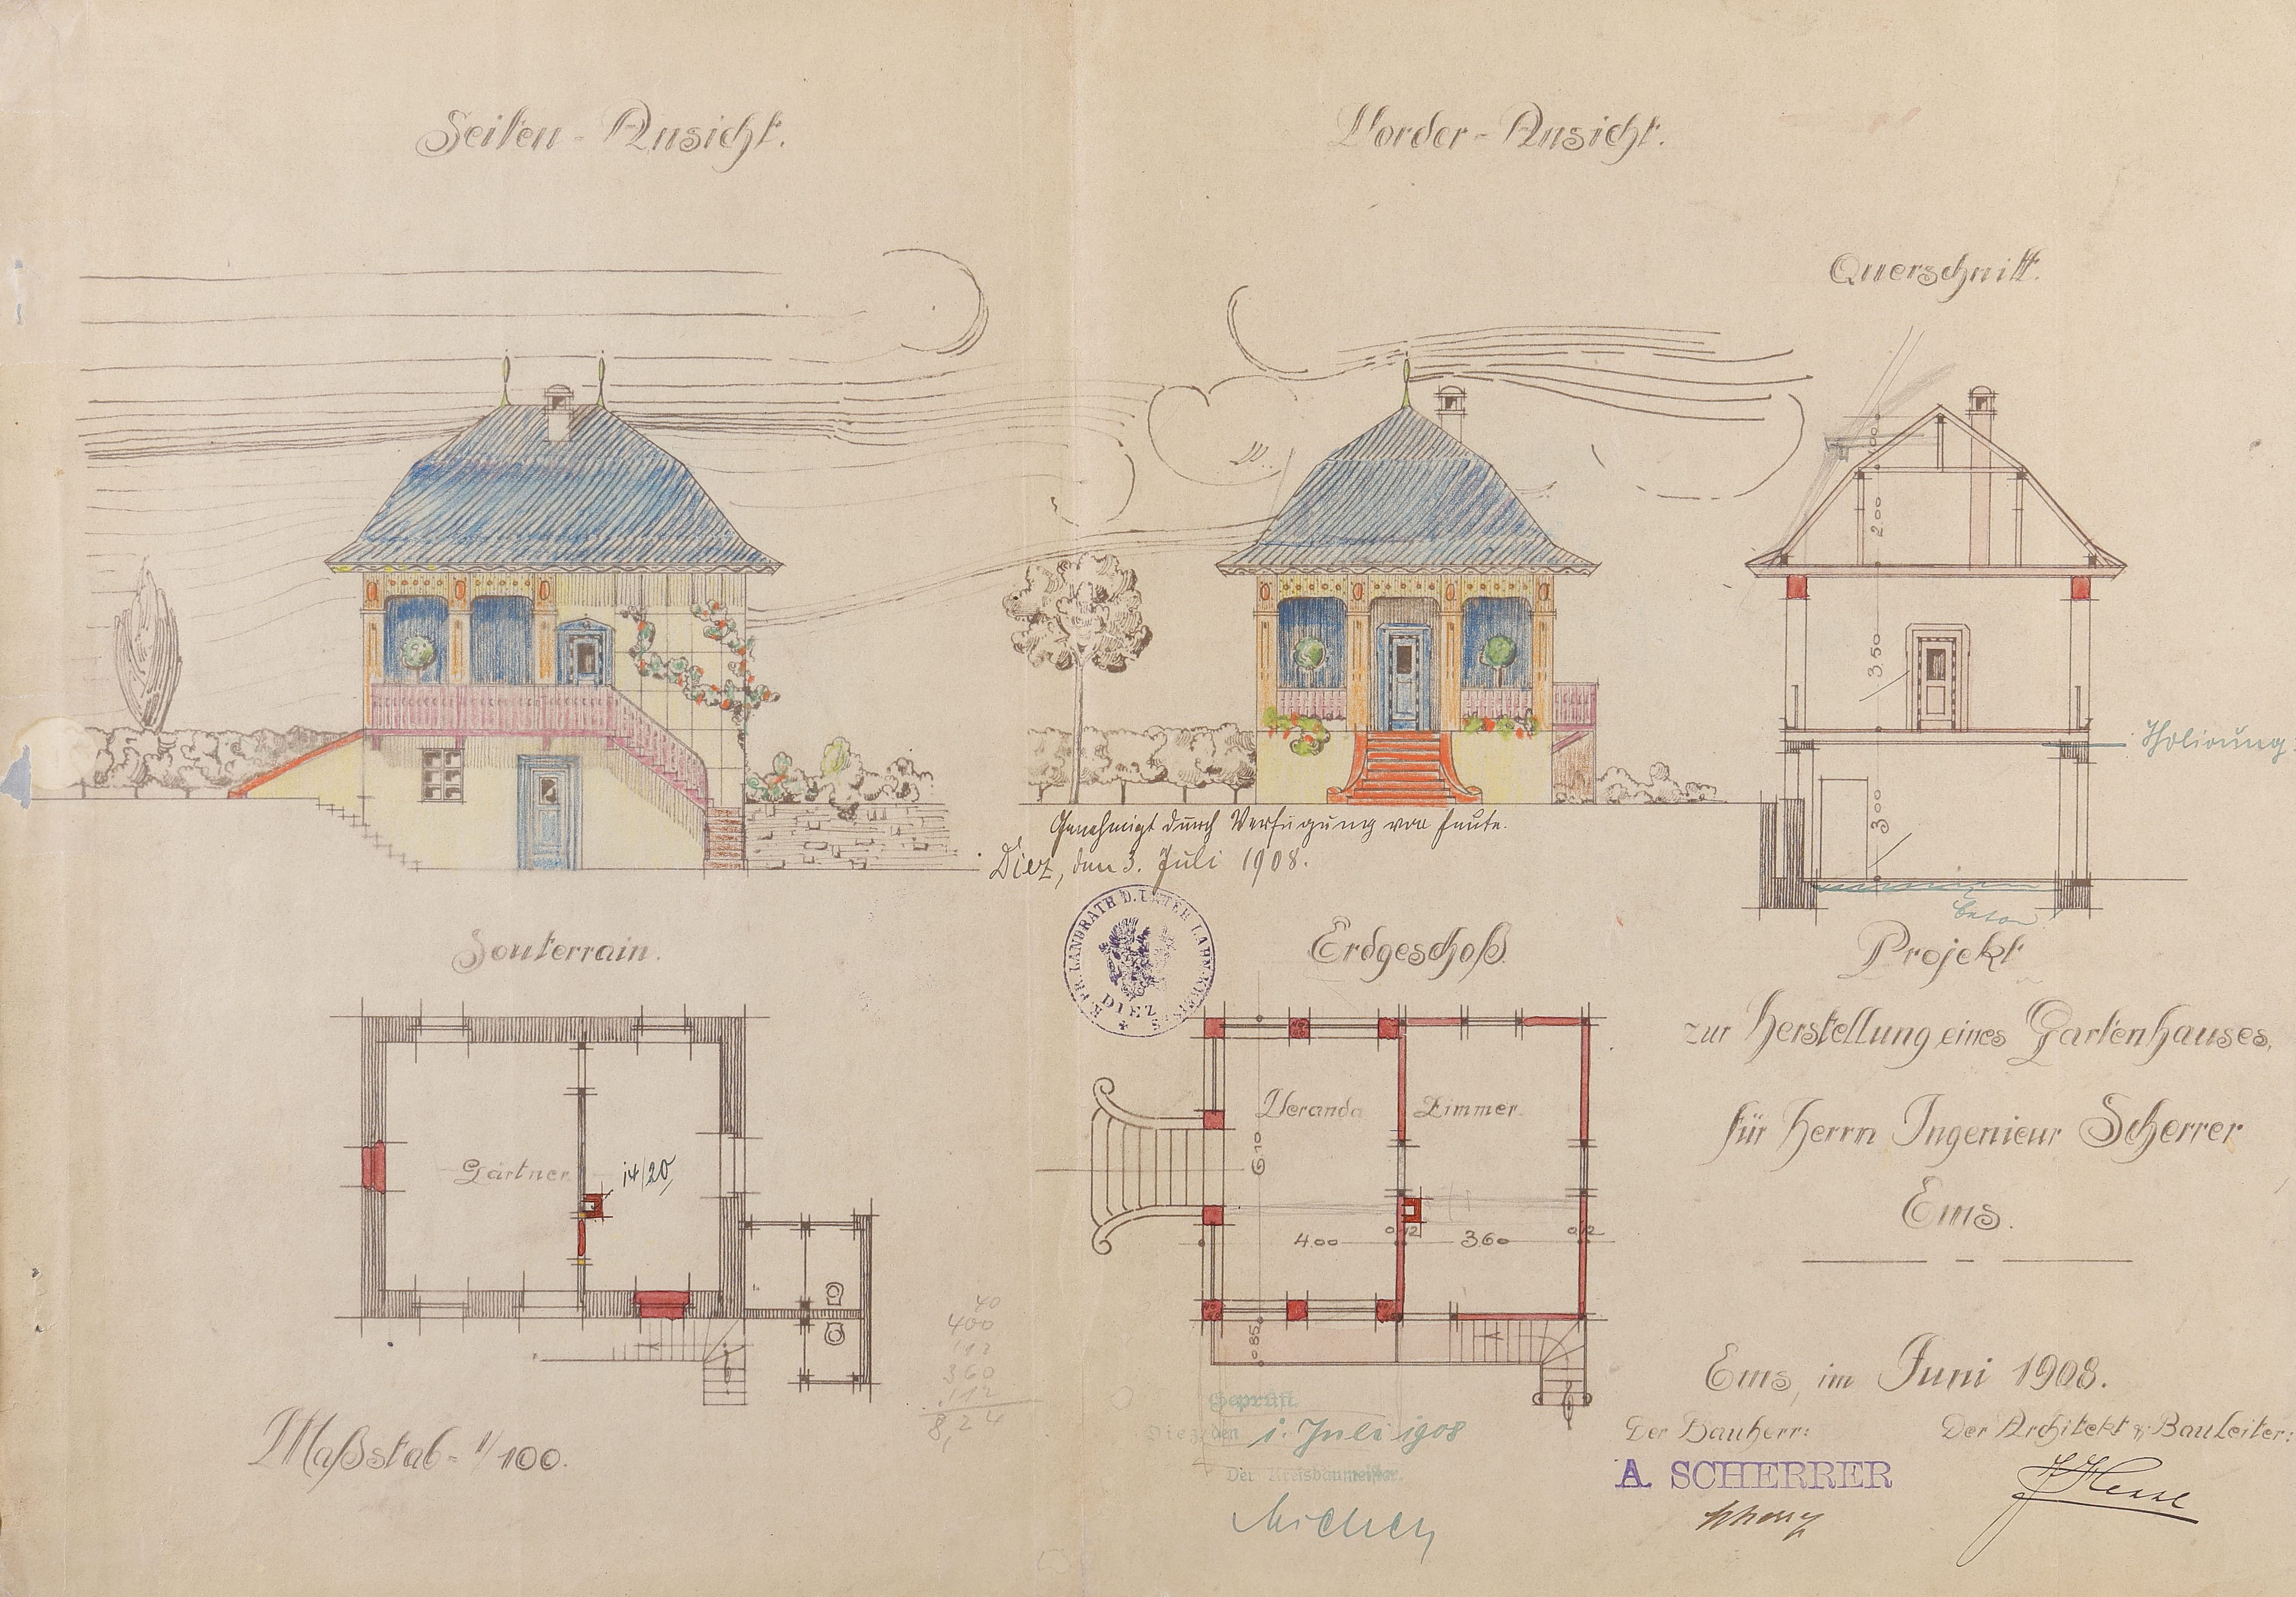 Seiten-Ansicht.
Vorder-Ansicht.
Querschnitt.
1.00
2.00
3.50
3.00
Isolirung
beton
Genehmigt durch Verfügung von heute.
Diez, den 3. Juli 1908.
K. PR. LANDRATH D. UNTER LAHN-KREISES
* DIEZ
Souterrain.
Gärtner
14/20
Erdgeschoß.
Veranda
Zimmer
6.10
4.00
0,12
3.60
0,12
0.85
40
400
112
360
112
8,24
Maßstab = 1/100.
Geprüft.
Diez, den 1. Juli 1908
Der Kreisbaumeister.
Projekt
zur Herstellung eines Gartenhauses,
für Herrn Ingenieur Scherrer
Ems.
Ems, im Juni 1908.
Der Bauherr:
A. SCHERRER
Der Architekt & Bauleiter: